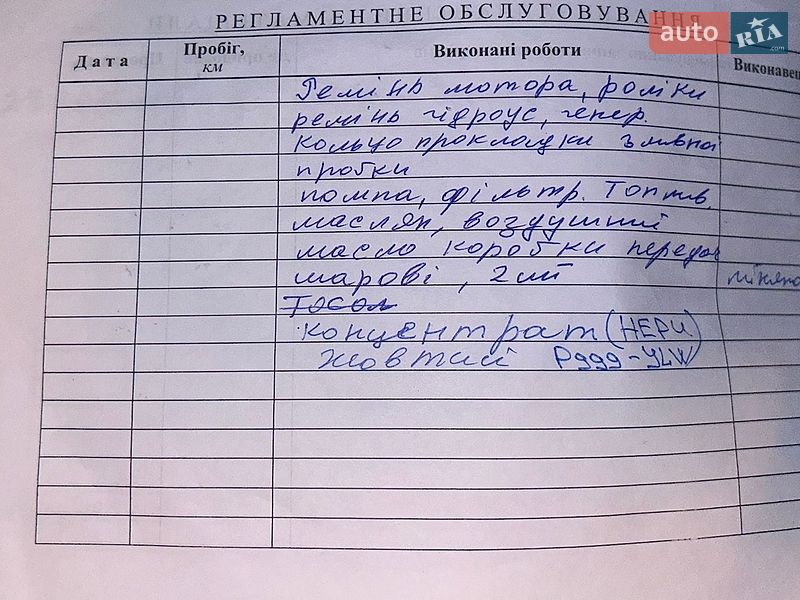 РЕГЛАМЕНТНЕ ОБСЛУГОВУВАННЯ
auto RIA .com
Дата
Пробіг, км
Виконані роботи
Виконавець
Ремінь мотора, роліки
ремінь гідроус, генер.
кольцо прокладки зливної
пробки
помпа, фільтр. Топлив.
маслян, воздушний
масло коробки передач
шарові, 2 шт
Тосол
концентрат (HEPU)
жовтий P999-YLW